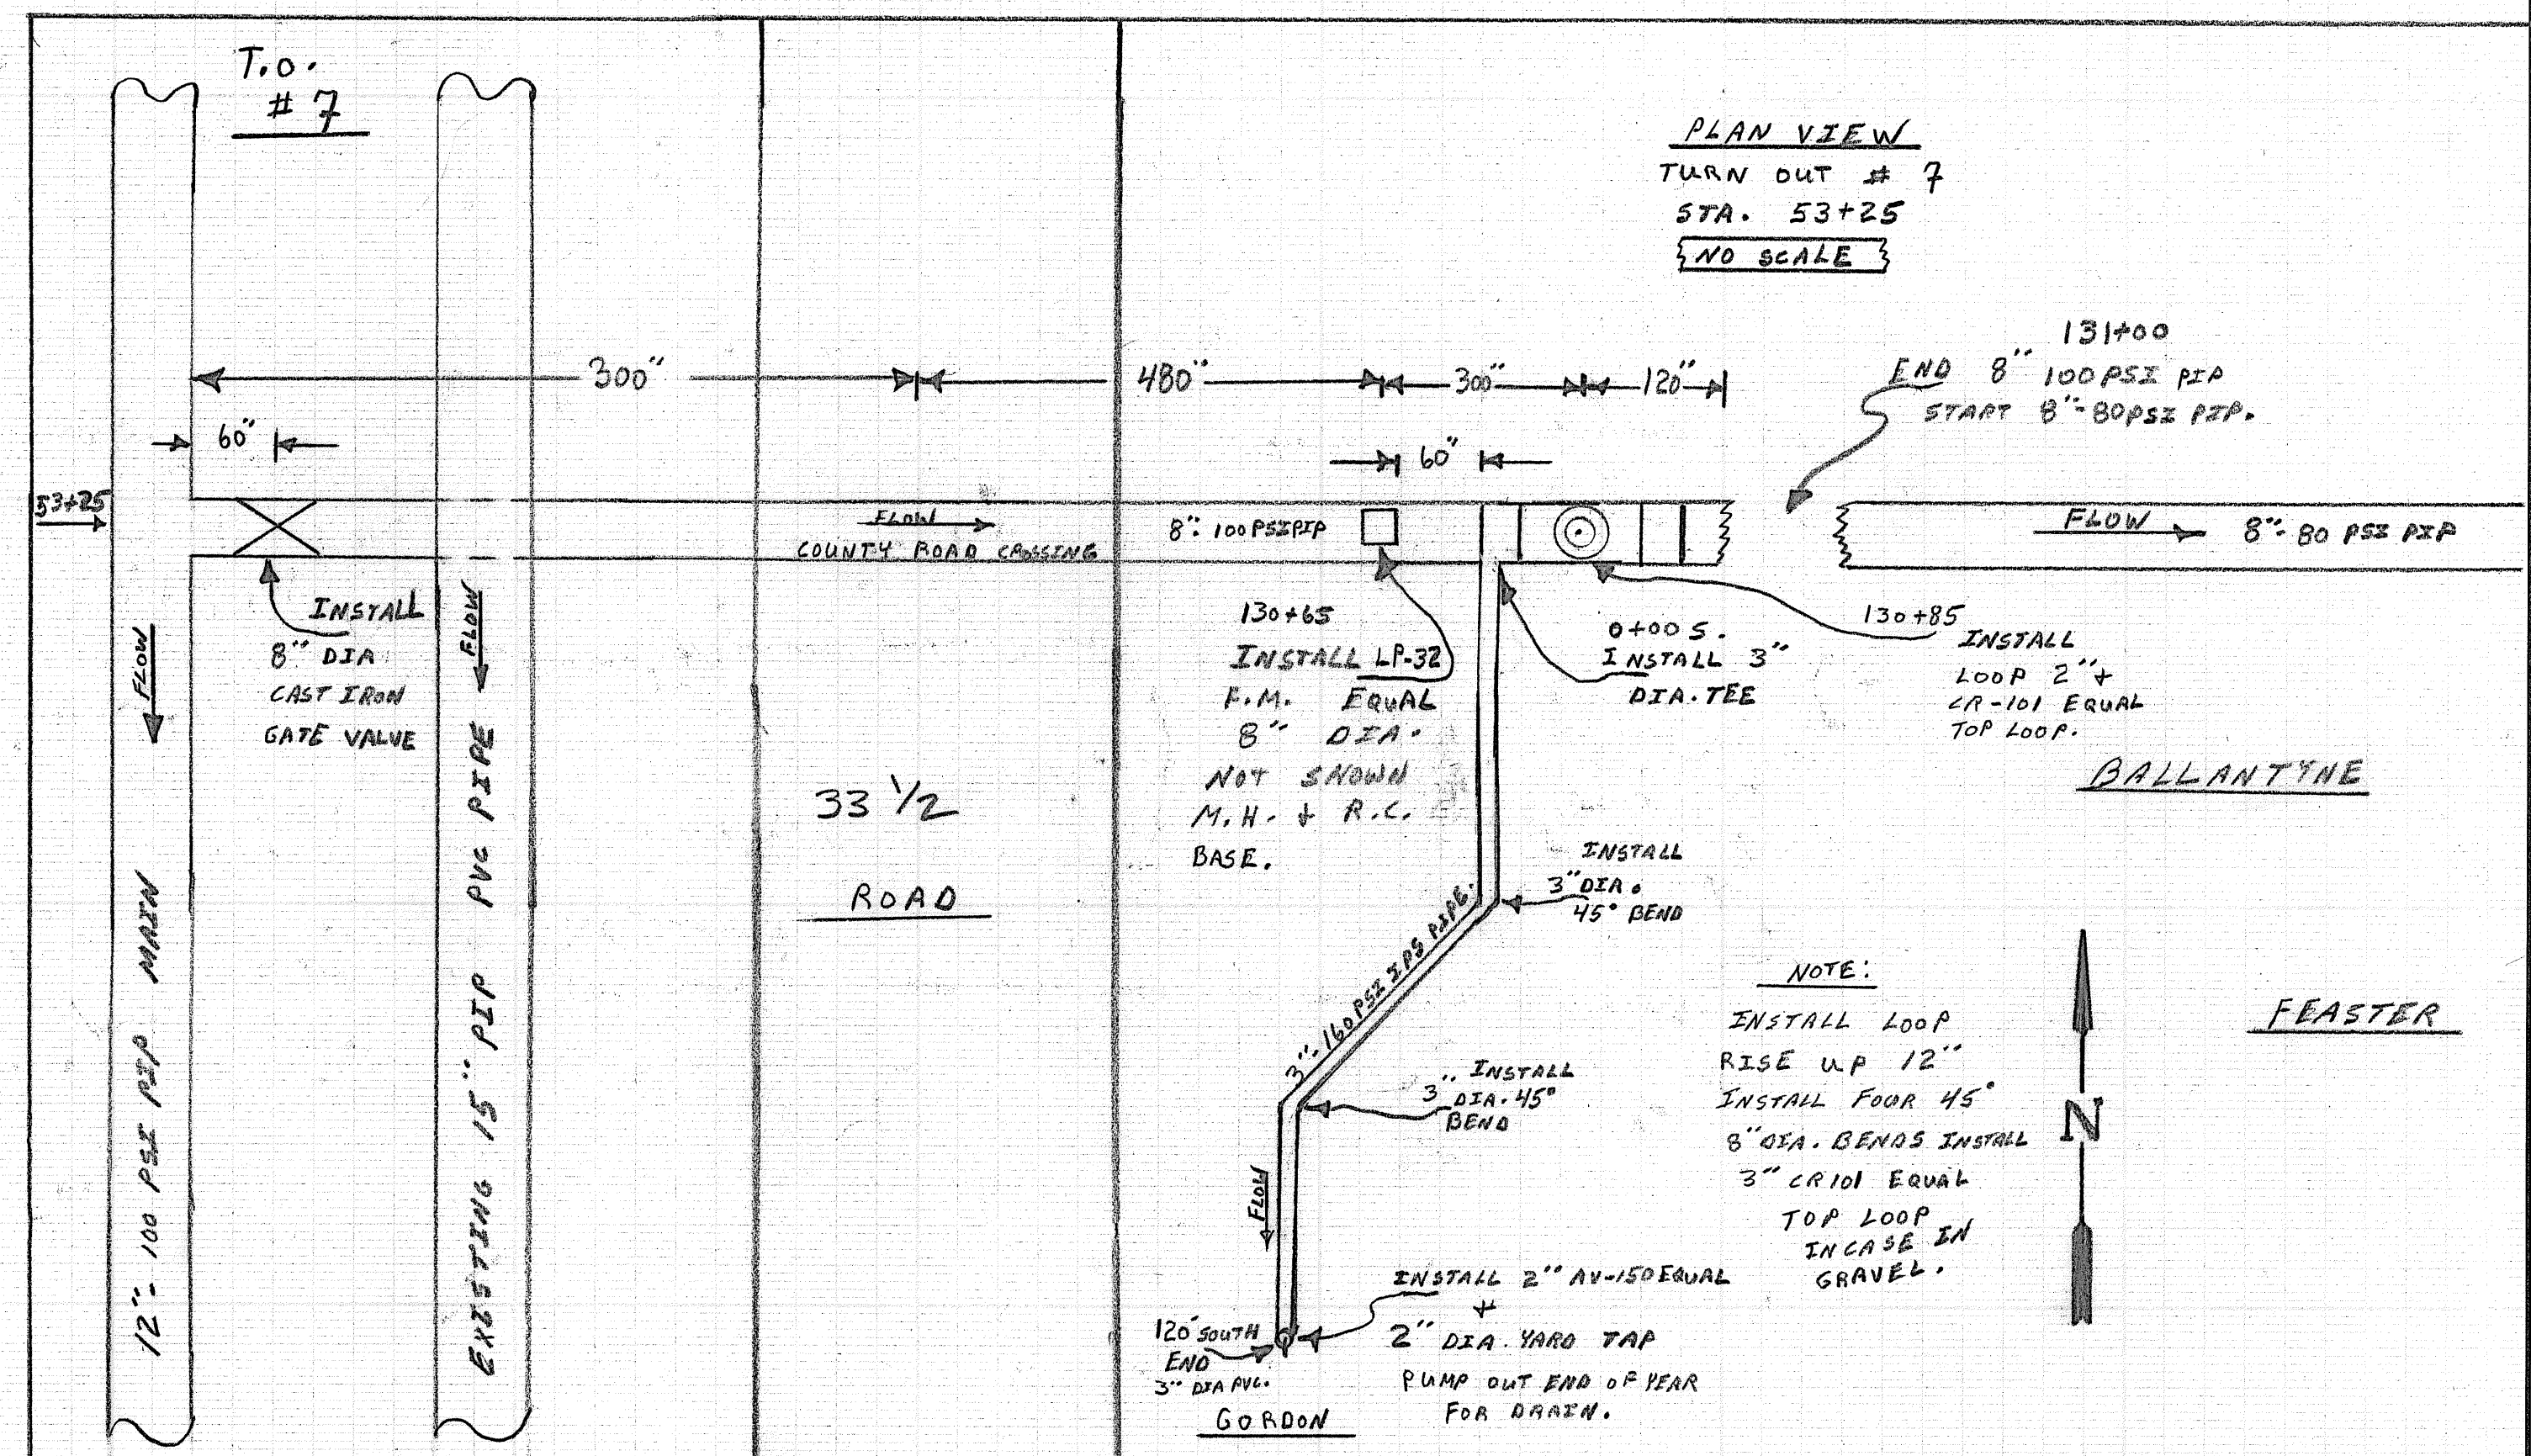 T.O.
# 7
PLAN VIEW
TURN OUT # 7
STA. 53+25
NO SCALE
300"
480"
300"
120"
60"
60"
131+00
END 8" 100 PSI PIP
START 8"-80PSI PIP.
53+25
FLOW
COUNTY ROAD CROSSING
8"- 100 PSI PIP
FLOW
8"- 80 PSI PIP
INSTALL
8" DIA
CAST IRON
GATE VALVE
FLOW
12"- 100 PSI PIP MAIN
FLOW
EXISTING 15" PIP PVC PIPE
33 1/2
ROAD
130+65
INSTALL LP-32
F.M. EQUAL
8" DIA.
NOT SHOWN
M.H. + R.C.
BASE.
0+00 S.
INSTALL 3"
DIA. TEE
130+85
INSTALL
LOOP 2" +
CR-101 EQUAL
TOP LOOP.
BALLANTYNE
INSTALL
3" DIA.
45° BEND
3"-160 PSI IPS PIPE.
INSTALL
3" DIA. 45°
BEND
FLOW
NOTE:
INSTALL LOOP
RISE UP 12"
INSTALL FOUR 45°
8" DIA. BENDS INSTALL
3" CR101 EQUAL
TOP LOOP
INCASE IN
GRAVEL.
N
FEASTER
INSTALL 2" AV-150 EQUAL
+
2" DIA. YARD TAP
PUMP OUT END OF YEAR
FOR DRAIN.
120' SOUTH
END
3" DIA PVC.
GORDON